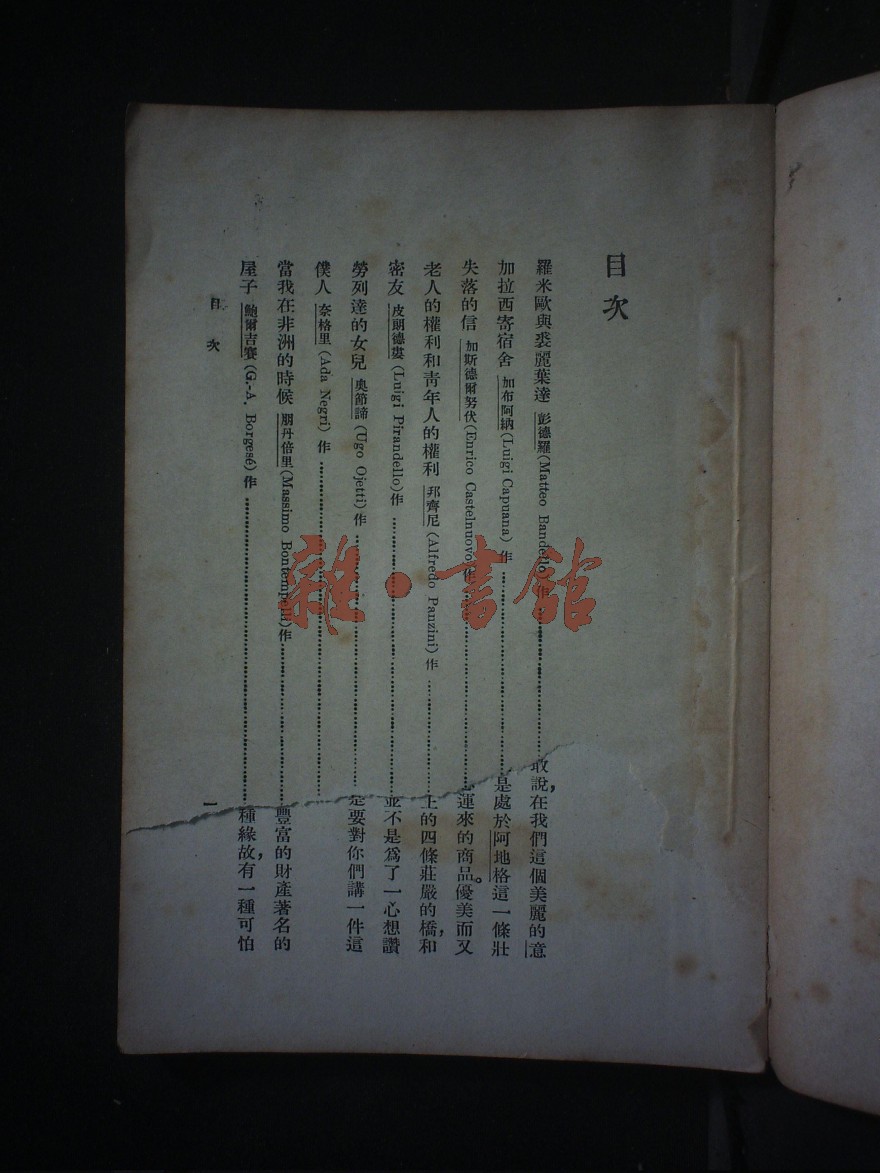 目次
羅米歐與裘麗葉達 彭德羅(Matteo Bandello)作
加拉西寄宿舍 加布阿納(Luigi Capuana)作
失落的信 加斯德爾努伏(Enrico Castelnuovo)作
老人的權利和青年人的權利 邦齊尼(Alfredo Panzini)作
密友 皮朗德婁(Luigi Pirandello)作
勞列達的女兒 奧節諦(Ugo Ojetti)作
僕人 奈格里(Ada Negri)作
當我在非洲的時候 朋丹倍里(Massimo Bontempelli)作
屋子 鮑爾吉賽(G.-A. Borgesé)作
目次 一
說，在我們這個美麗的意
是處於阿地格這一條壯
運來的商品。優美而又
上的四條莊嚴的橋，和
並不是爲了一心想讚
是要對你們講一件這
豐富的財產著名的
種緣故，有一種可怕
雜·書館